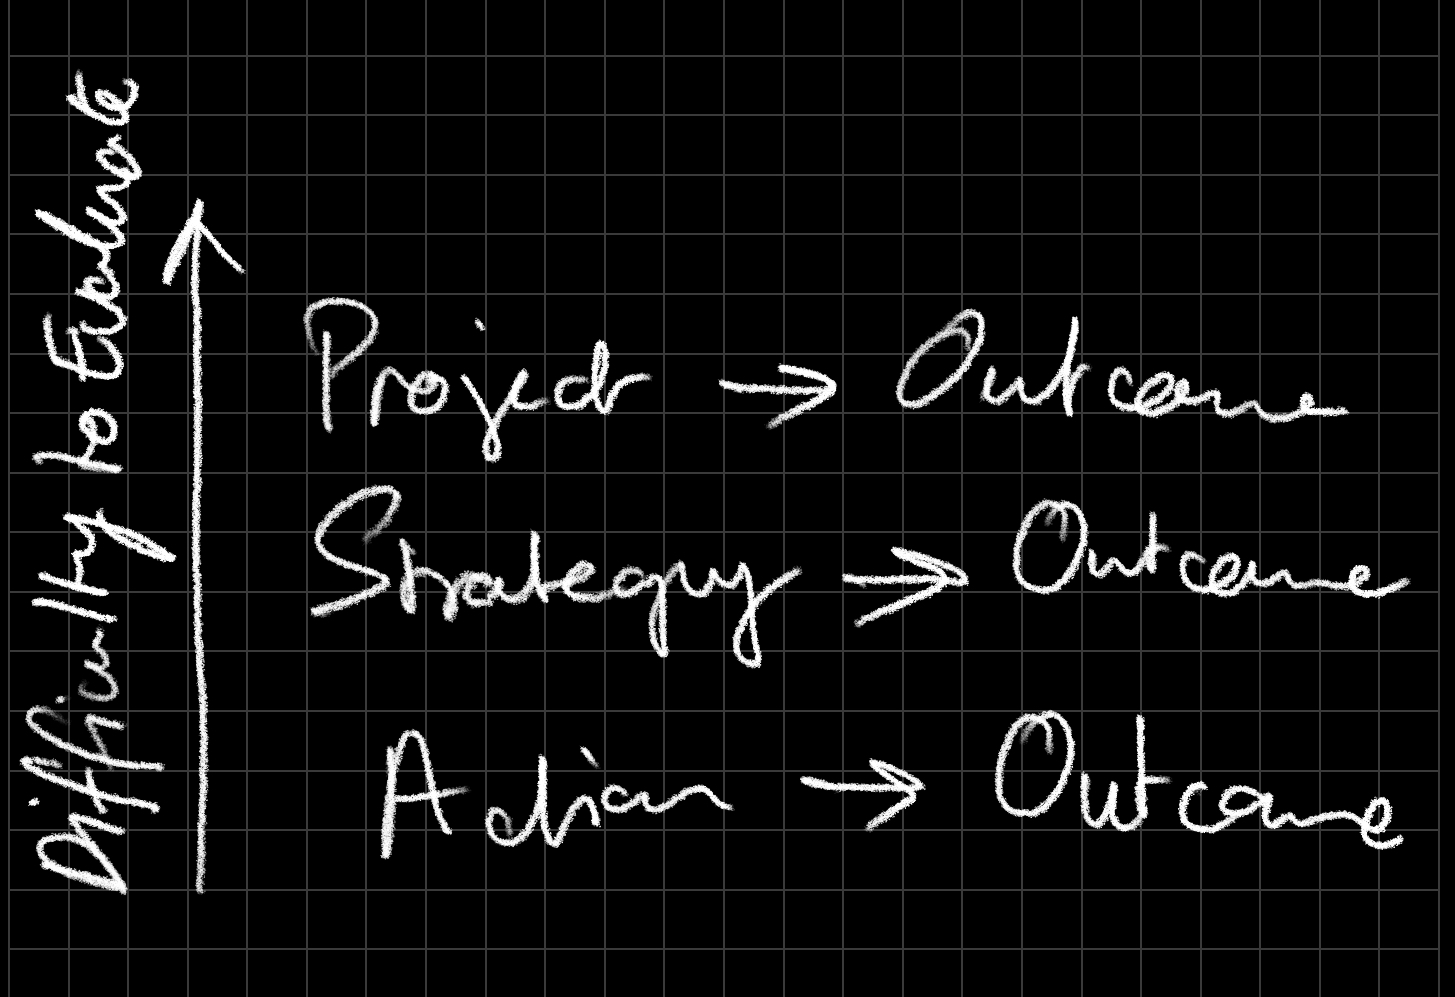 Difficulty to Evaluate
Project → Outcome
Strategy → Outcome
Action → Outcome